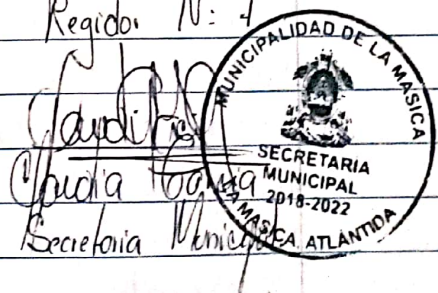 Regidor N: 1
Claudia
Secretaria Municipal
MUNICIPALIDAD DE LA MASICA
SECRETARIA
MUNICIPAL
2018-2022
LA MASICA, ATLÁNTIDA